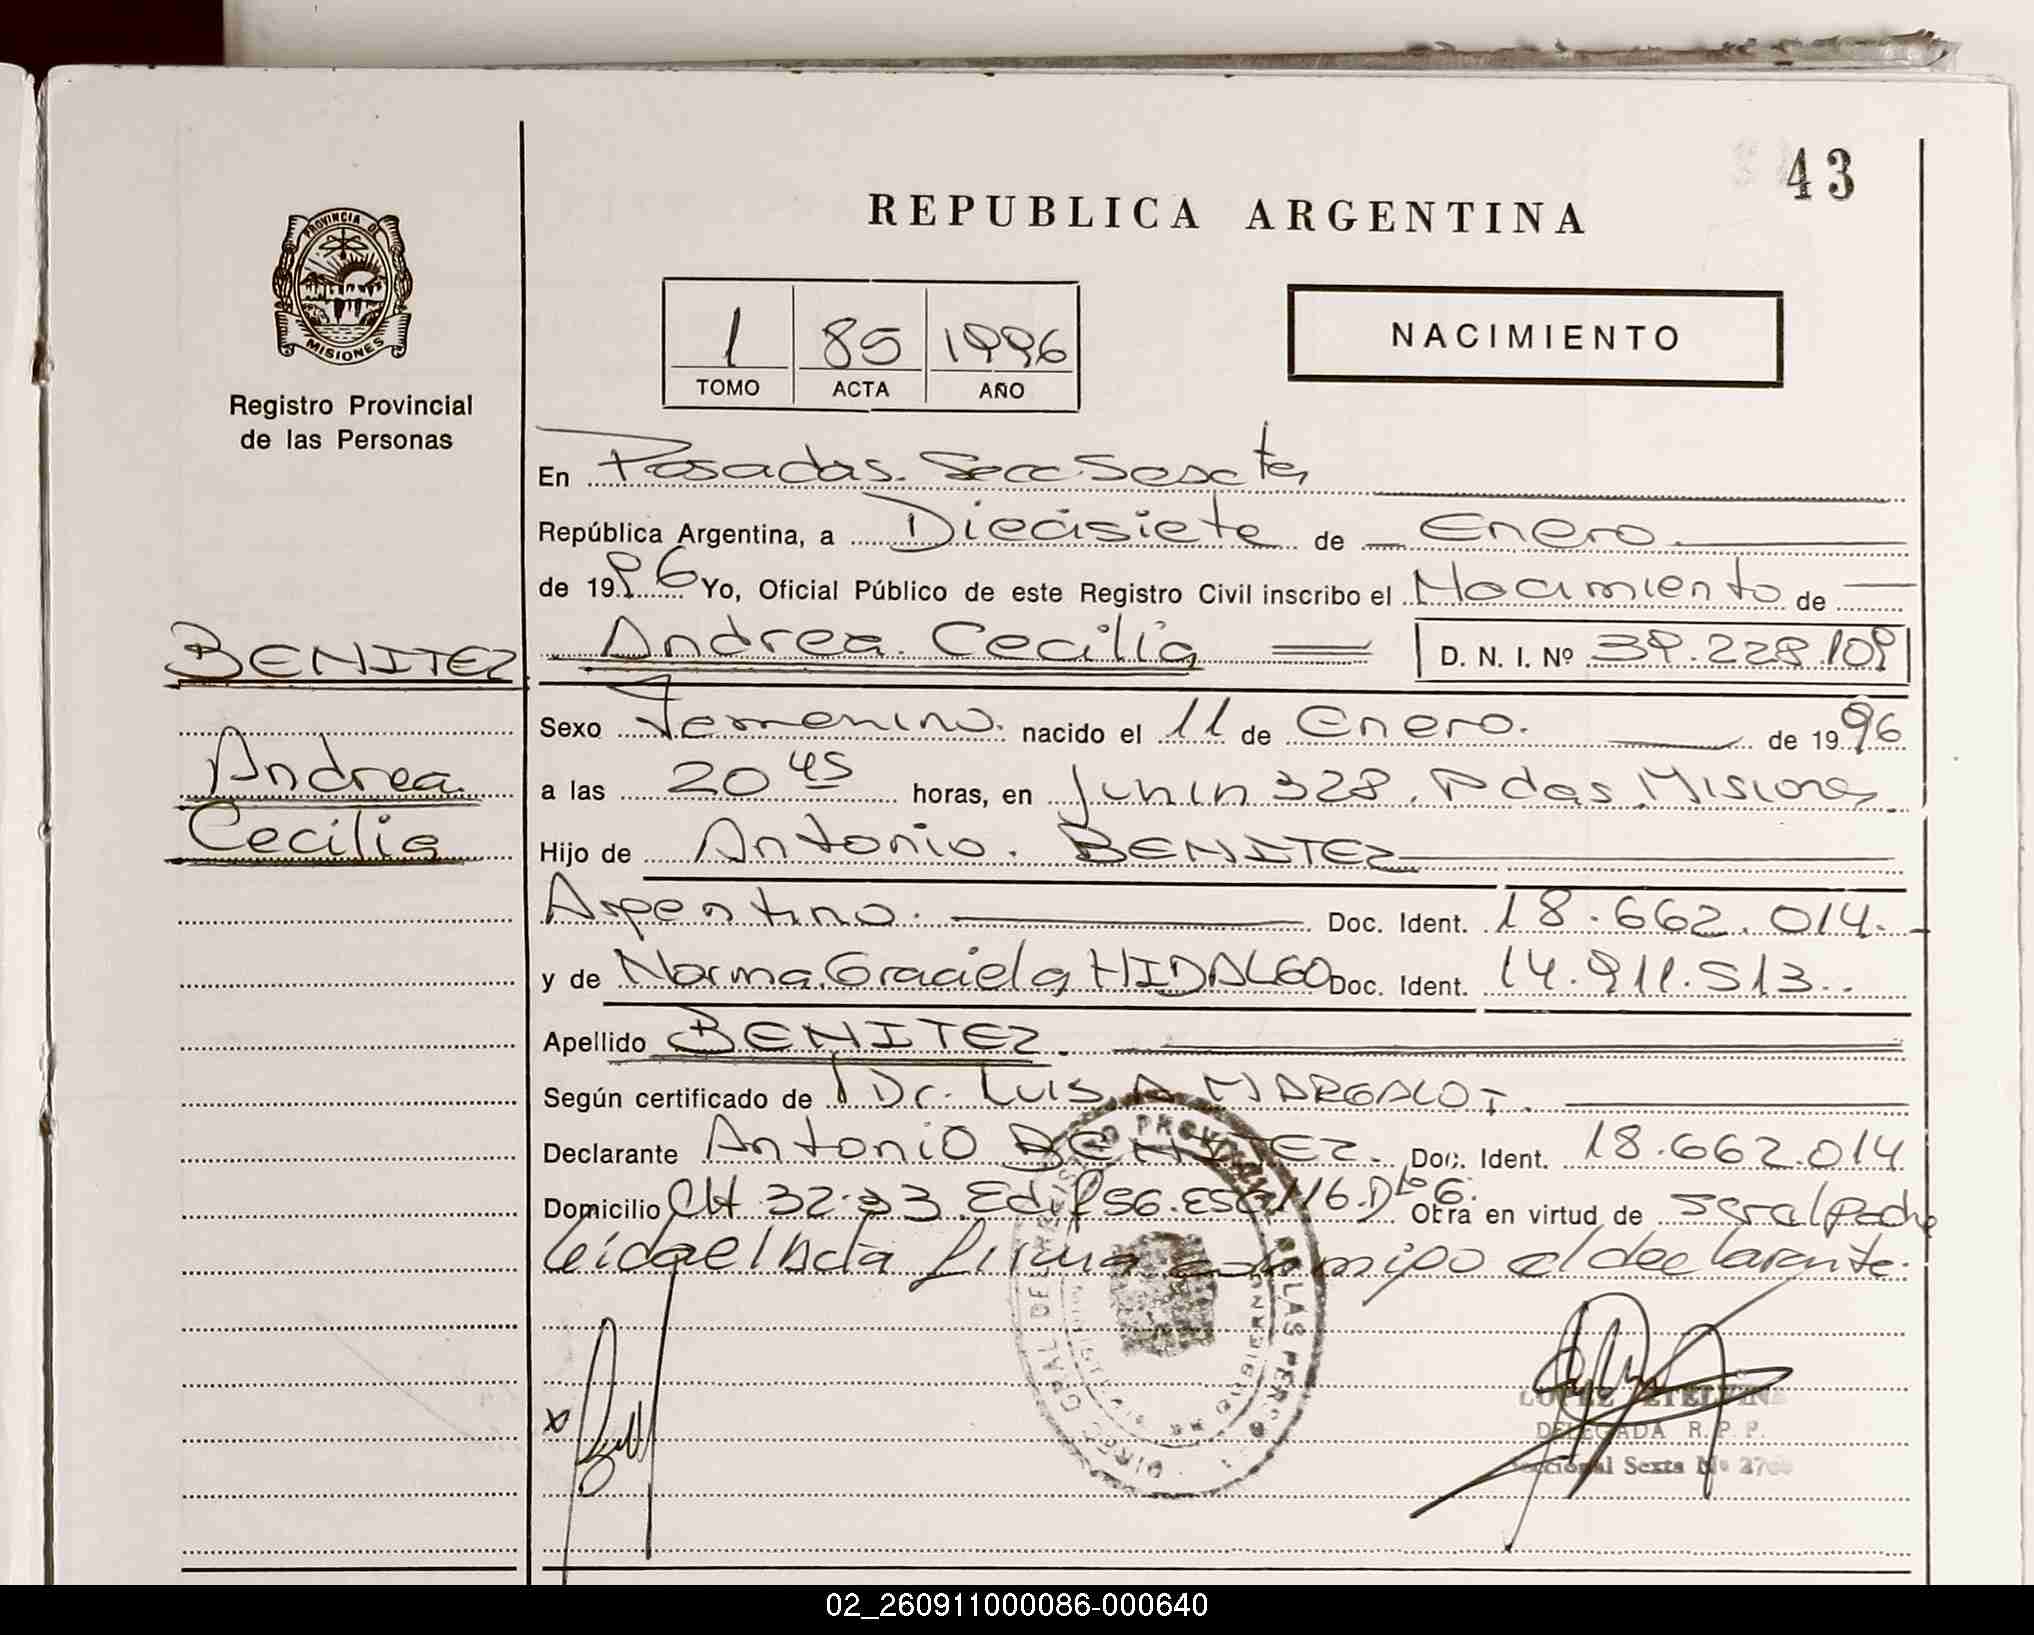 43
REPUBLICA ARGENTINA
PROVINCIA DE
MISIONES
Registro Provincial
de las Personas
1 85 1996
TOMO ACTA AÑO
NACIMIENTO
En Posadas. Secc Sexta
República Argentina, a Diecisiete de Enero.
de 1996 Yo, Oficial Público de este Registro Civil inscribo el Nacimiento de
BENITEZ
Andrea Cecilia D. N. I. Nº 39.228.109
Sexo Femenino. nacido el 11 de Enero. de 1996
Andrea
Cecilia
a las 20 45 horas, en Junin 328. Pdas Misiones.
Hijo de Antonio. BENITEZ
Argentino. Doc. Ident. 18.662.014.
y de Norma Graciela HIDALGO Doc. Ident. 14.911.513..
Apellido BENITEZ.
Según certificado de Dr. Luis A MARGALOT.
Declarante Antonio BENITEZ. Doc. Ident. 18.662.014
Domicilio CH 32-33 Edif 56. ESC 116. Dto 6. Obra en virtud de ser al padre
leida el Acta firma conmigo el declarante.
LOPEZ ETELVINA
DELEGADA R. P. P.
Seccional Sexta Nº
02_260911000086-000640